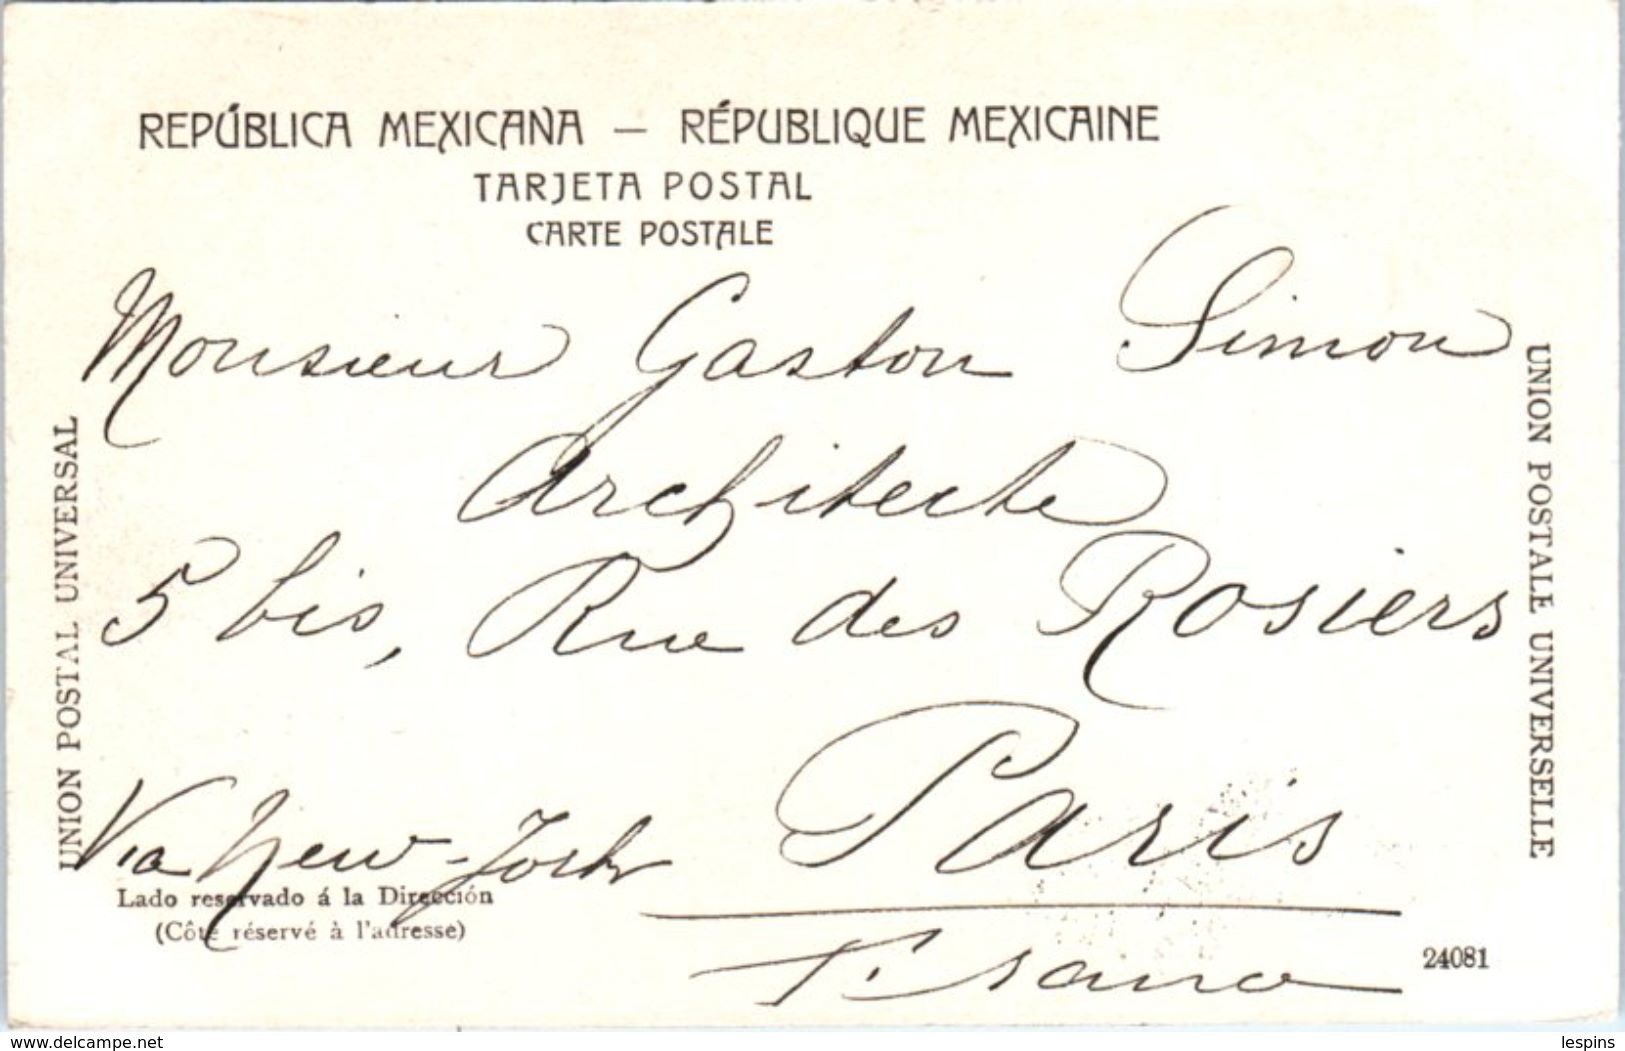 REPÚBLICA MEXICANA — RÉPUBLIQUE MEXICAINE
TARJETA POSTAL
CARTE POSTALE
Monsieur Gaston Simon
Architecte
5 bis, Rue des Rosiers
Paris
France
Via New-York
UNION POSTAL UNIVERSAL
UNION POSTALE UNIVERSELLE
Lado reservado á la Dirección
(Côté réservé à l'adresse)
24081
www.delcampe.net
lespins